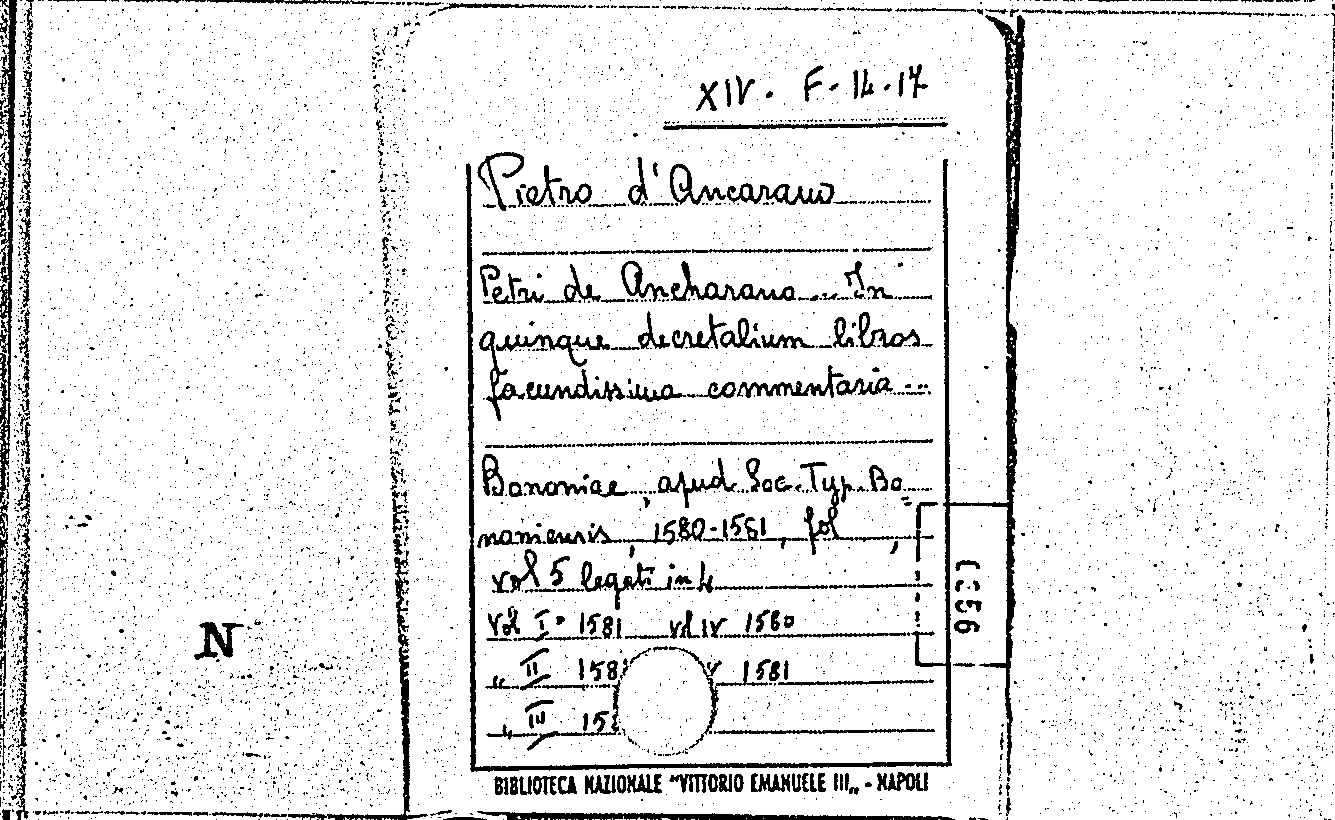 XIV. F. 14.17
Pietro d'Ancarano
Petri de Ancharano ... In
quinque decretalium libros
facundissima commentaria ...
Bononiae, apud Soc. Typ. Bo-
noniensis, 1580-1581, fol,
vol 5 legati in 4
Vol I° 1581 vol IV 1580
" II 1581 V 1581
" III 158
BIBLIOTECA NAZIONALE "VITTORIO EMANUELE III" - NAPOLI
N